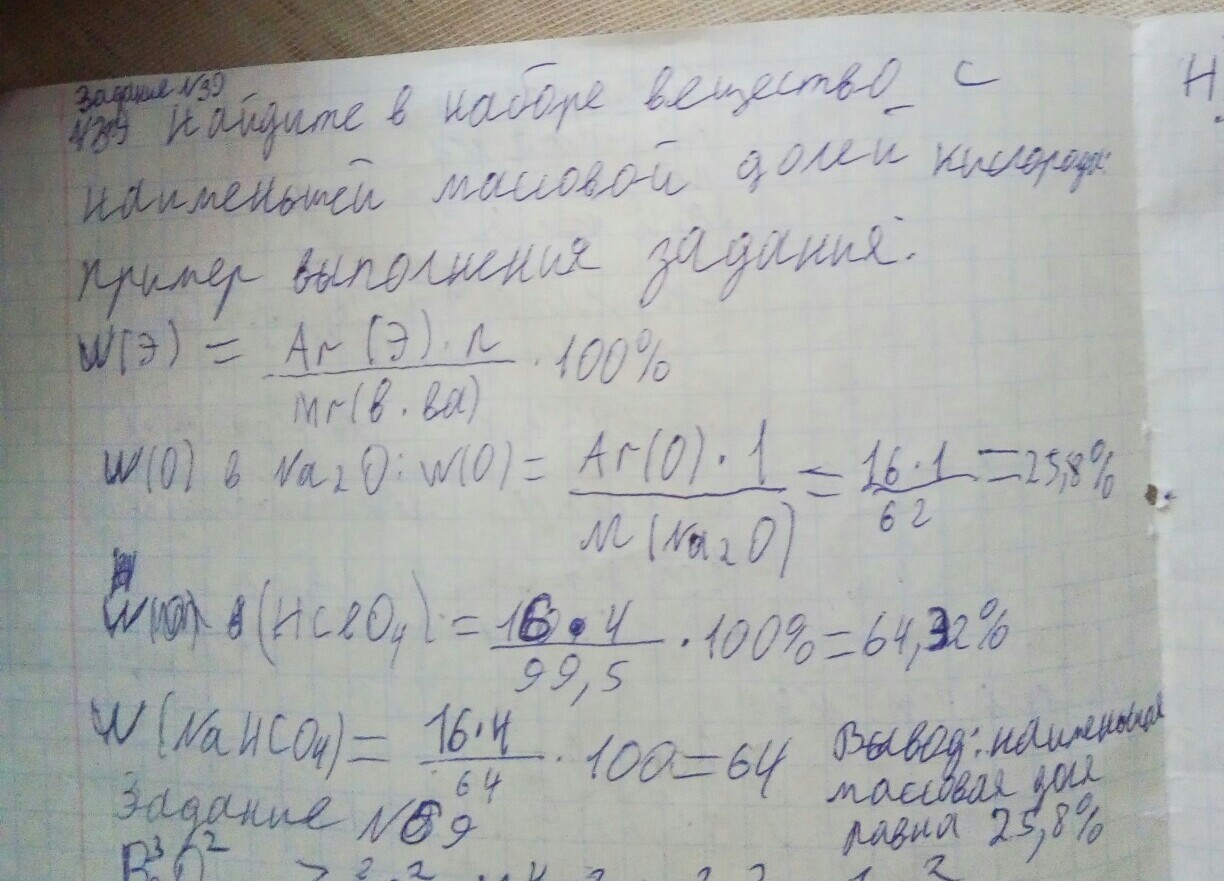 Задание №39
№39 Найдите в наборе вещество с
наименьшей массовой долей кислорода:
Пример выполнения задания:
W(Э) = Ar(Э)·n / Mr(в.ва) · 100%
W(O) в Na₂O: W(O) = Ar(O)·1 / M(Na₂O) = 16·1 / 62 = 25,8%
W(O) в (HClO₄) = 16·4 / 99,5 · 100% = 64,32%
W(NaHCO₄) = 16·4 / 64 · 100 = 64
Вывод: наименьшая
массовая доля
равна 25,8%
Задание №59